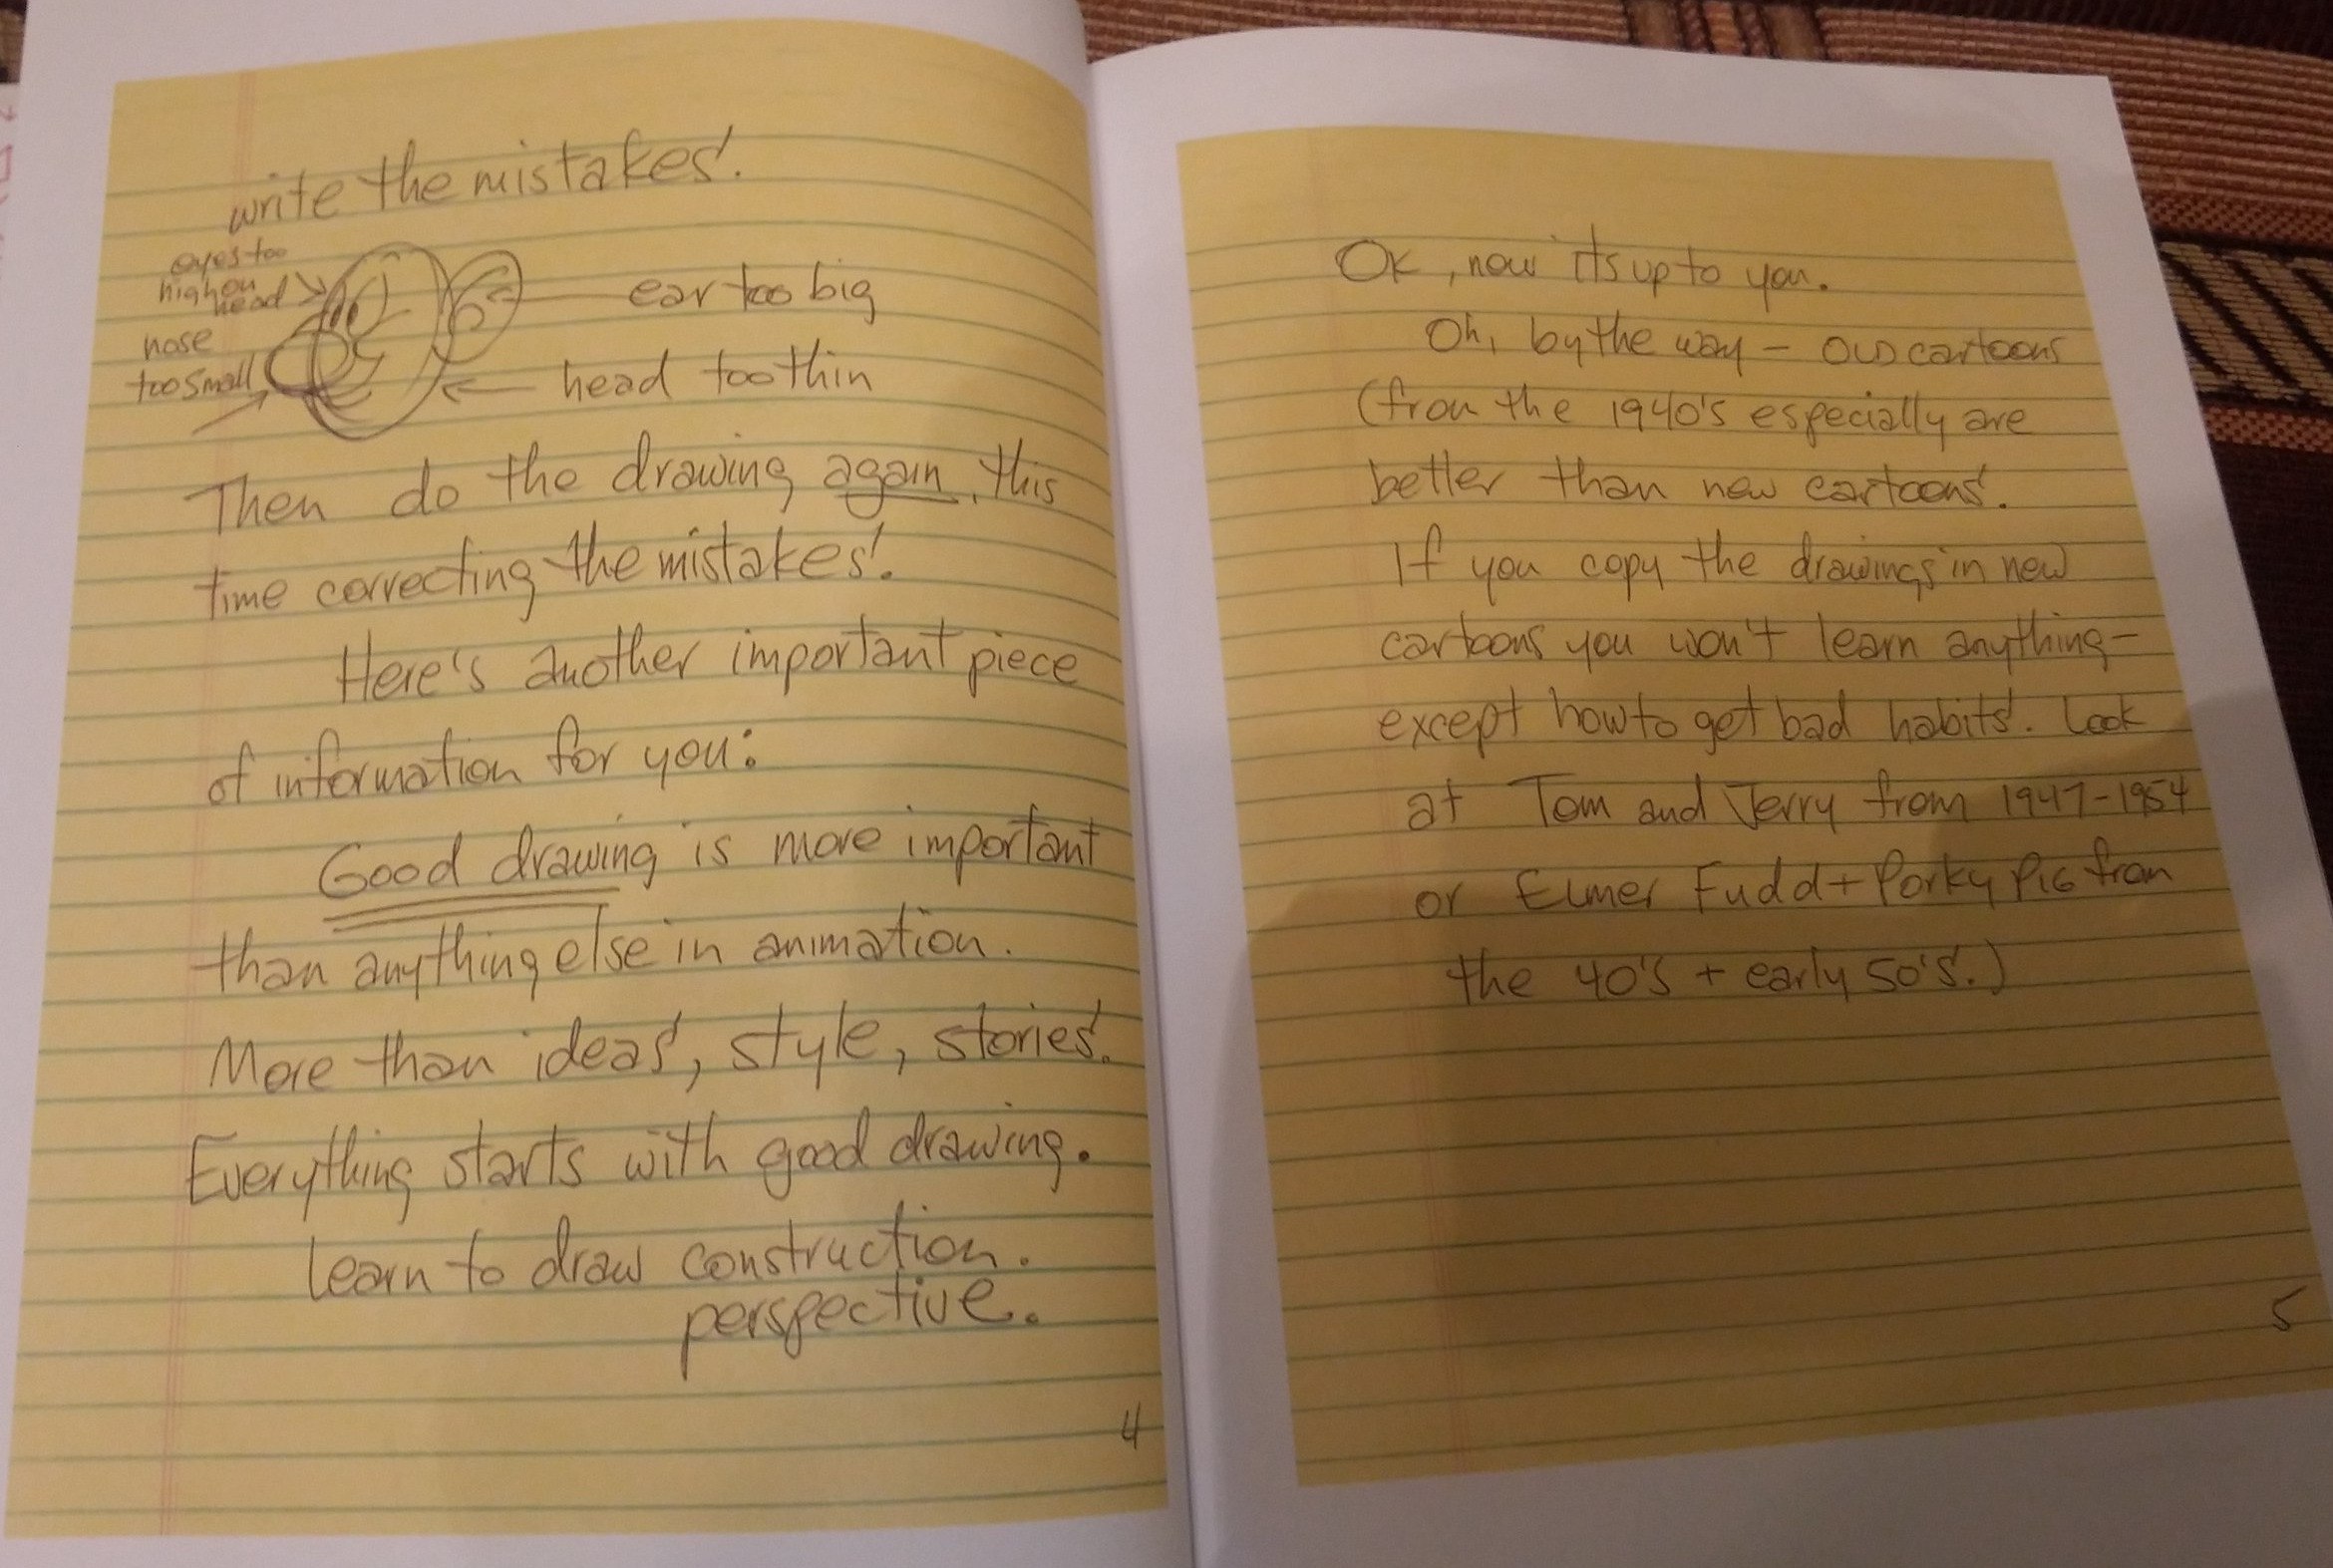 write the mistakes.
eyes too
high on
head
nose
too small
ear too big
head too thin
Then do the drawing again, this
time correcting the mistakes.
Here's another important piece
of information for you:
Good drawing is more important
than anything else in animation.
More than ideas, style, stories.
Everything starts with good drawing.
Learn to draw construction.
perspective.
4
OK, now it's up to you.
Oh, by the way - OLD cartoons
(from the 1940's especially are
better than new cartoons.
If you copy the drawings in new
cartoons you won't learn anything-
except how to get bad habits. Look
at Tom and Jerry from 1947-1954
or Elmer Fudd + Porky Pig from
the 40's + early 50's.)
5